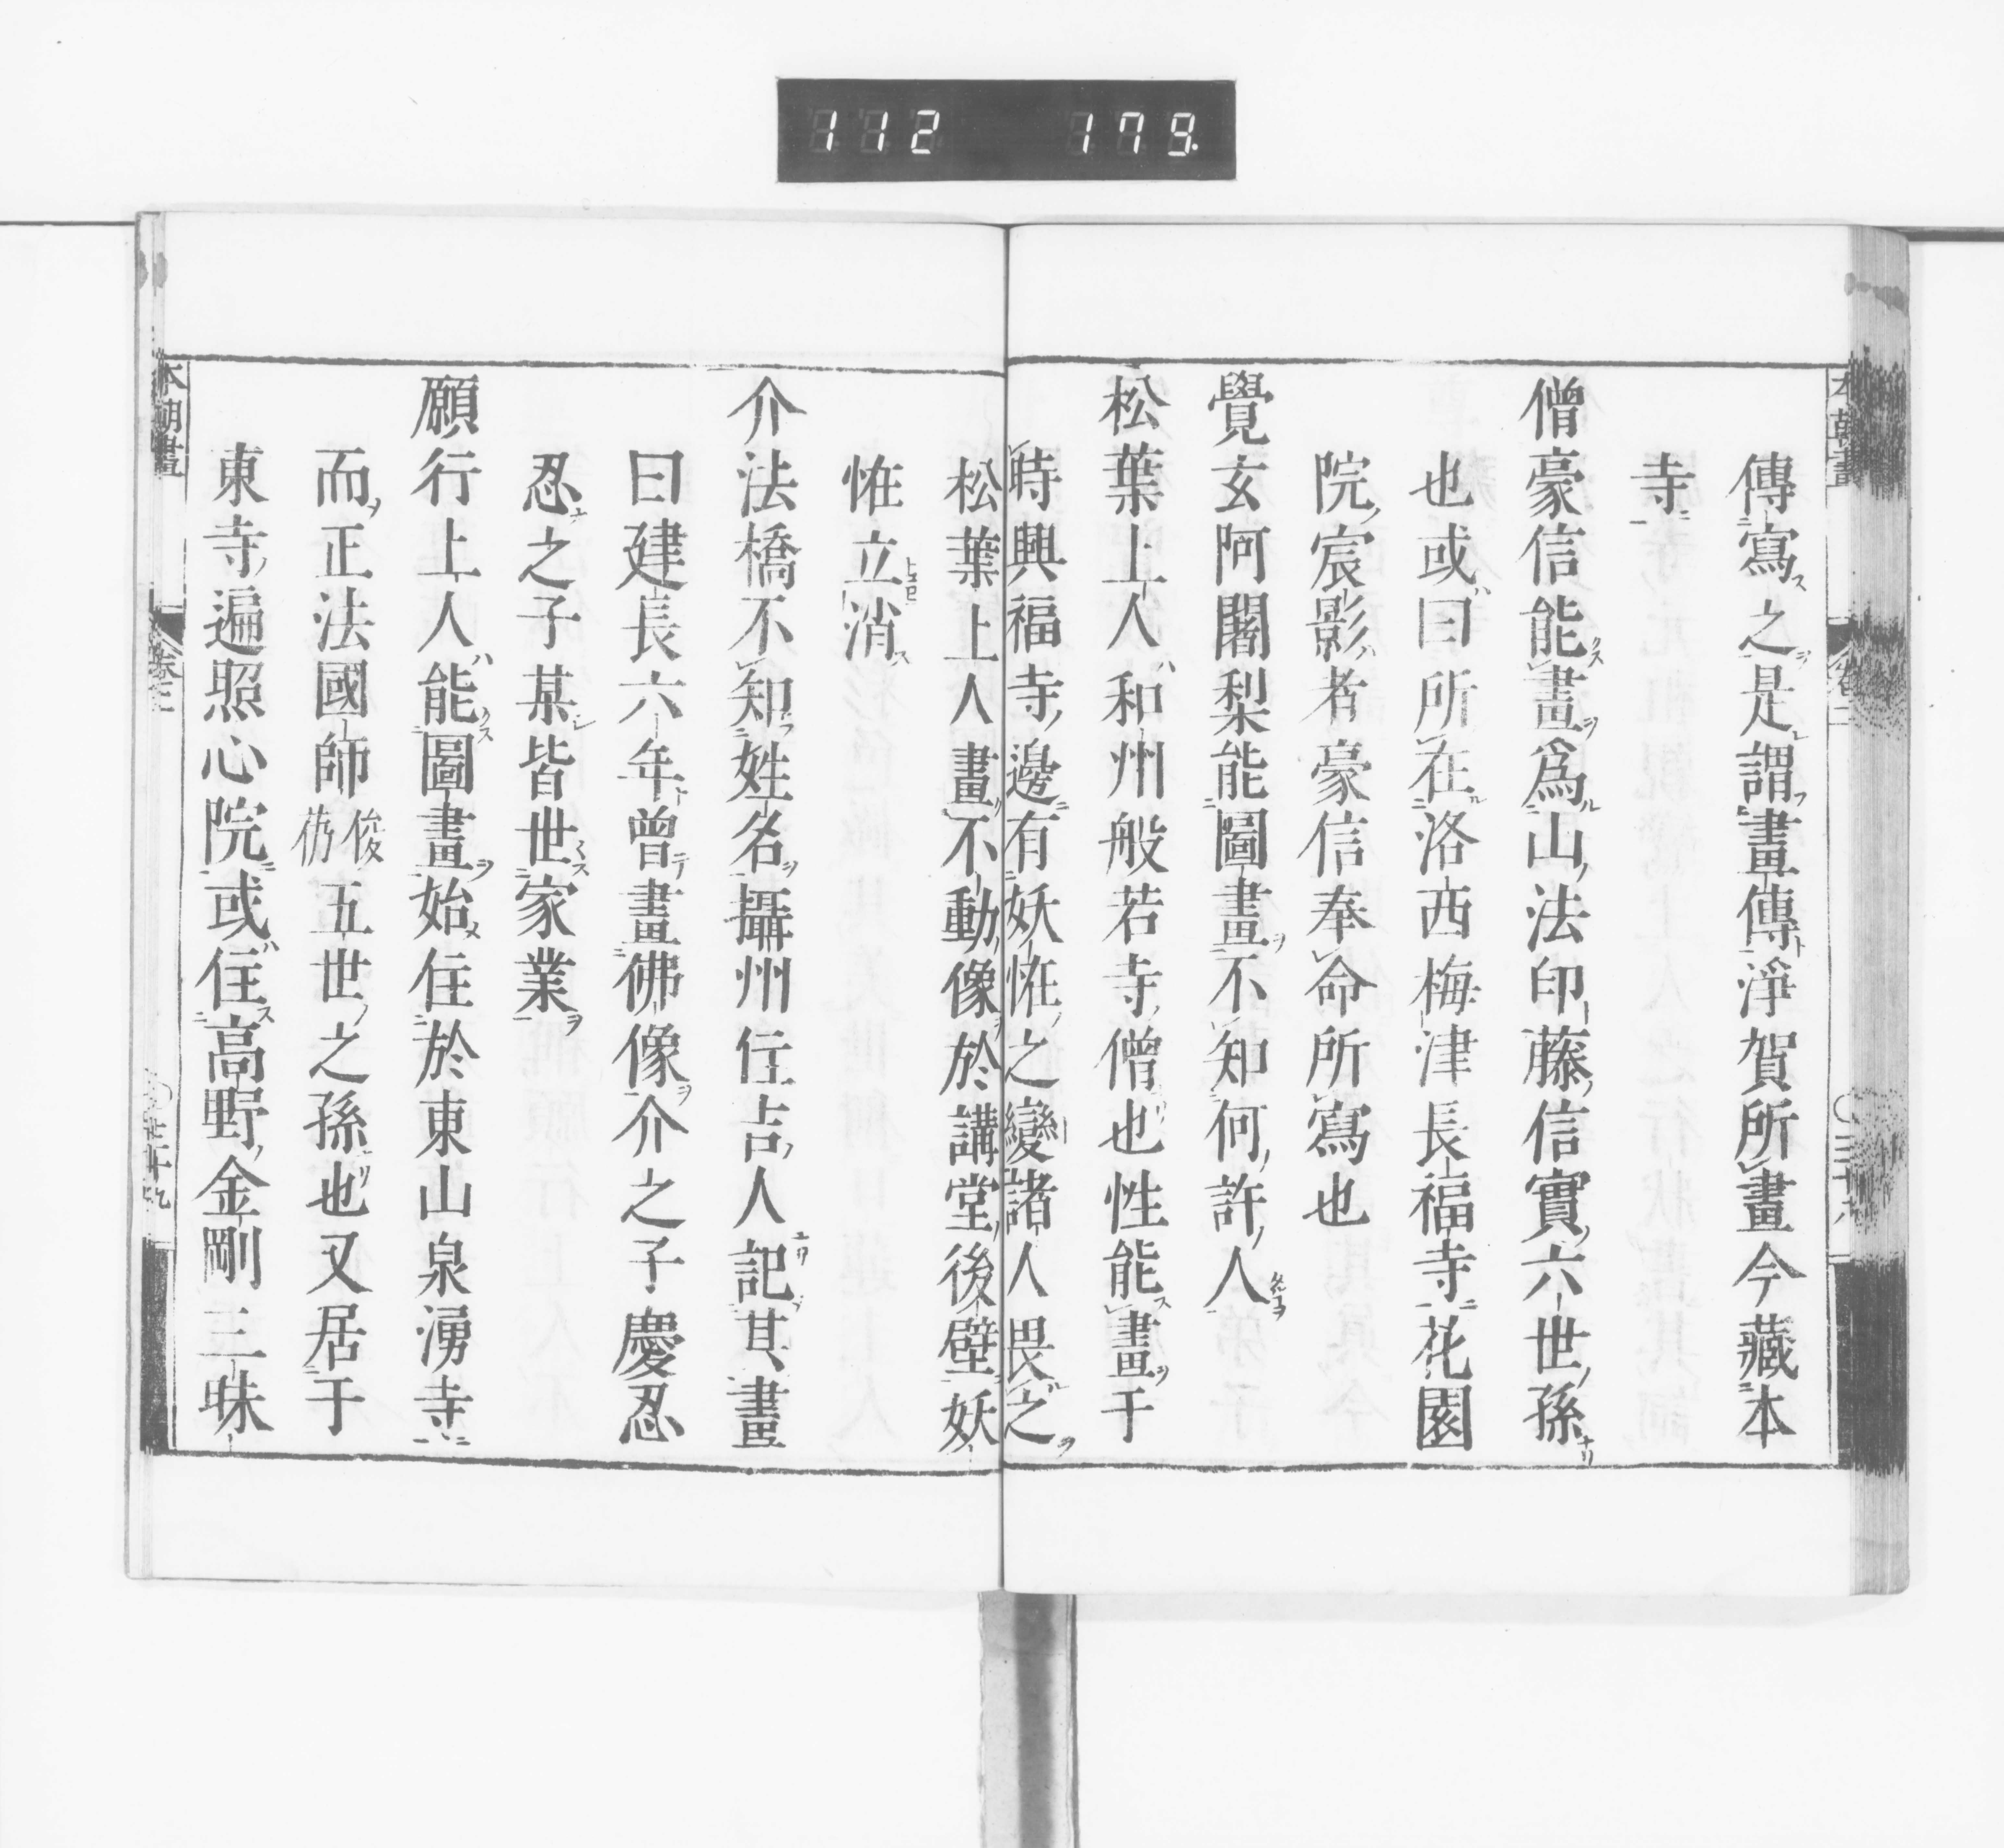 112 179.
傳寫之是謂畫傳淨賀所畫今藏本
寺
僧豪信能畫爲山法印藤信實六世孫
也或曰所在洛西梅津長福寺花園
院宸影者豪信奉命所寫也
覺玄阿闍梨能圖畫不知何許人
松葉上人和州般若寺僧也性能畫于
時興福寺邊有妖恠之變諸人畏之
松葉上人畫不動像於講堂後壁妖
恠立消
介法橋不知姓名攝州住吉人記其畫
曰建長六年曾畫佛像介之子慶忍
忍之子某皆世家業
願行上人能圖畫始住於東山泉湧寺
而正法國師俊芿五世之孫也又居于
東寺遍照心院或住高野金剛三昧
本朝畫
卷二